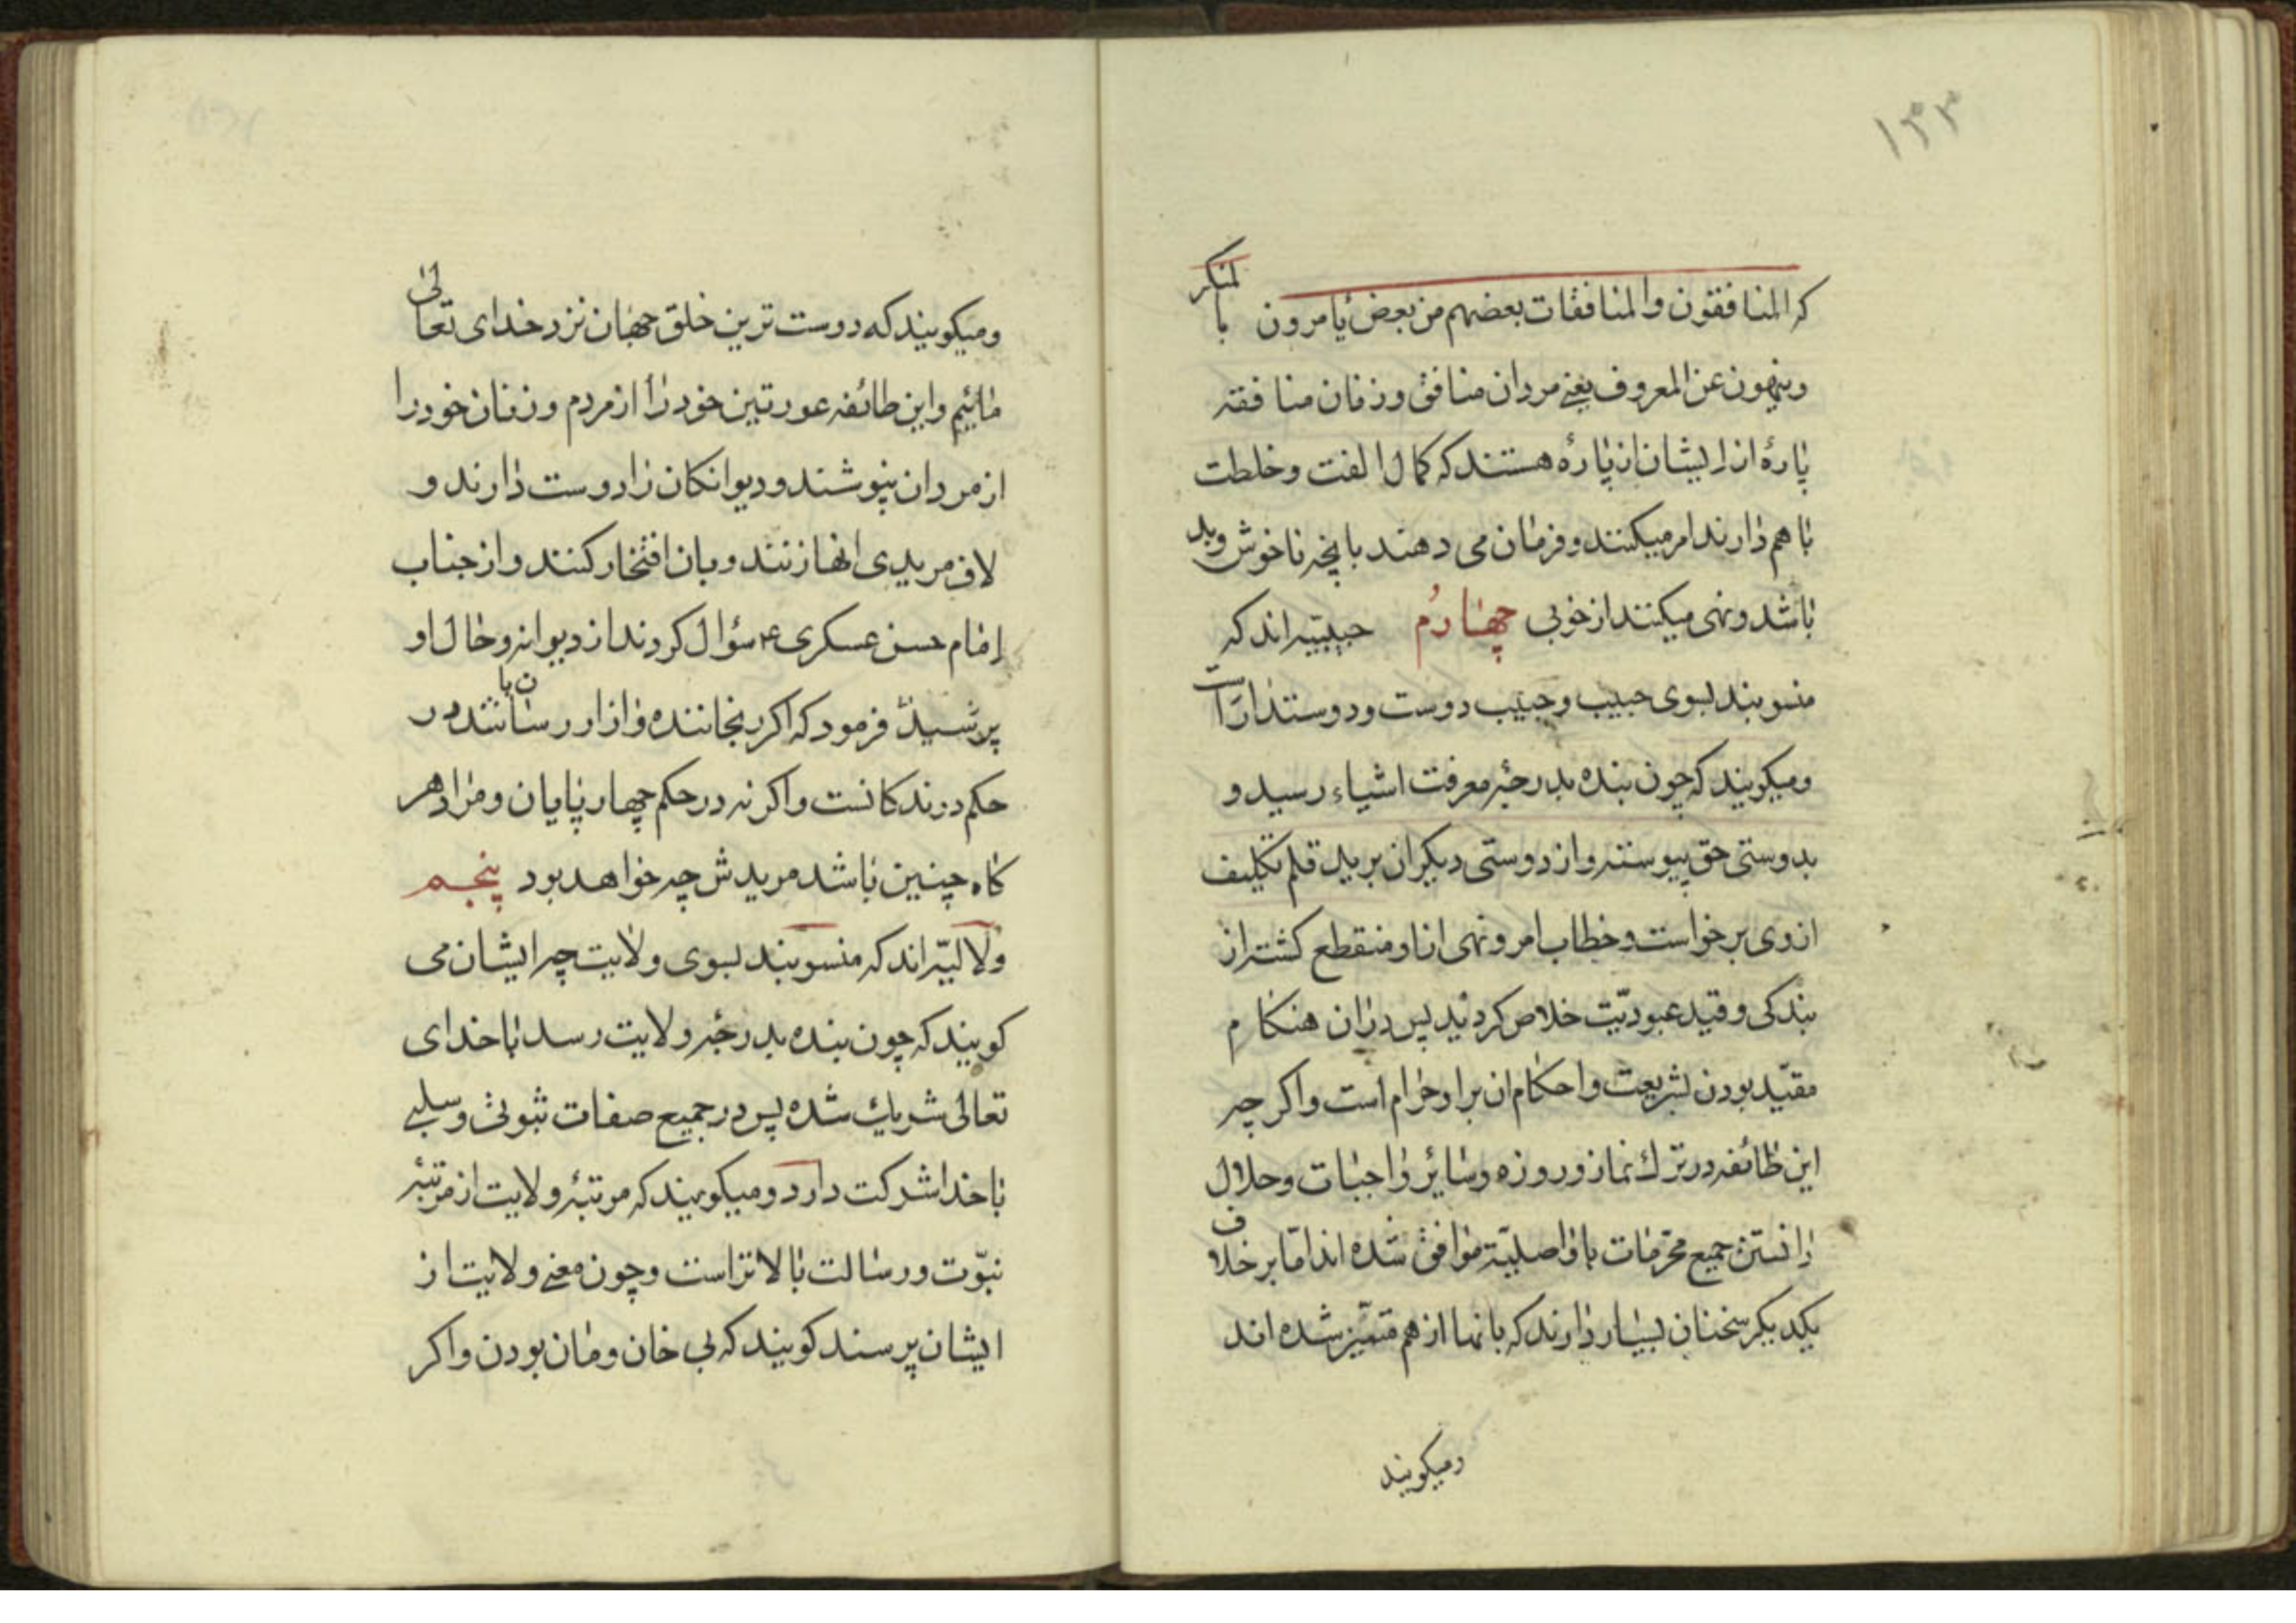 ۱۳۳
که المنافقون والمنافقات بعضهم من بعض یامرون بالمنکر
وینهون عن المعروف یعنی مردان منافق وزنان منافقه
پارهٔ از ایشان از پارهٔ هستند که کمال الفت وخلطت
با هم دارند امر میکنند وفرمان می دهند بانچه ناخوش وبد
باشد ونهی میکنند از خوبی چهارم حبیبیّه اند که
منسوبند بسوی حبیب وحبیب دوست ودوستدار است
ومیکویند که چون بنده بدرجهٔ معرفت اشیاء رسید و
بدوستی حق پیوسته واز دوستی دیکران برید قلم تکلیف
از وی برخواست وخطاب امر ونهی از او منقطع کشته از
بندکی وقید عبودیّت خلاص کردید پس در ان هنکام
مقیّد بودن بشریعت واحکام ان بر او حرام است واکر چه
این طائفه در ترك نماز وروزه وسایر واجبات وحلال
دانستن جمیع محرّمات با واصلیّه موافق شده اند امّا بر خلاف
یکدیکر سخنان بسیار دارند که بانها از هم متمیّز شده اند
ومیکویند
ومیکویند که دوست ترین خلق جهان نزد خدای تعالی
مائیم واین طائفه عورتین خود را از مردم وزنان خود را
از مردان نپوشند ودیوانکان را دوست دارند و
لاف مریدی انها زنند وبان افتخار کنند واز جناب
امام حسن عسکری ع سؤال کردند از دیوانه وحال او
پرسید فرمود که اکر رنجاننده وازار رسانند‌ه ن با در
حکم درندکانست واکر نه در حکم چهار پایان ومراد هر
کاه چنین باشد مریدش چه خواهد بود پنجم
ولائیّه اند که منسوبند بسوی ولایت چه ایشان می
کویند که چون بنده بدرجهٔ ولایت رسد با خدای
تعالی شریك شده پس در جمیع صفات ثبوتی وسلبی
با خدا شرکت دارد ومیکویند که مرتبهٔ ولایت از مرتبهٔ
نبوّت ورسالت بالاتر است وچون معنی ولایت از
ایشان پرسند کویند که بی خان ومان بودن واکر